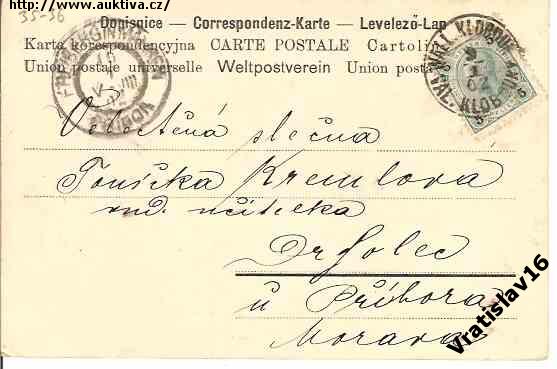 http://www.auktiva.cz/
35-36
Dopisnice — Correspondenz-Karte — Levelező-Lap
Karta korespondencyjna CARTE POSTALE Cartolina
Union postale universelle Weltpostverein Union posta
KLOBOUK
VAL. KLOB
Velectěná slečna
Tonička Kremlova
ind. učitelka
u Příbora
Morava
Vratislav16